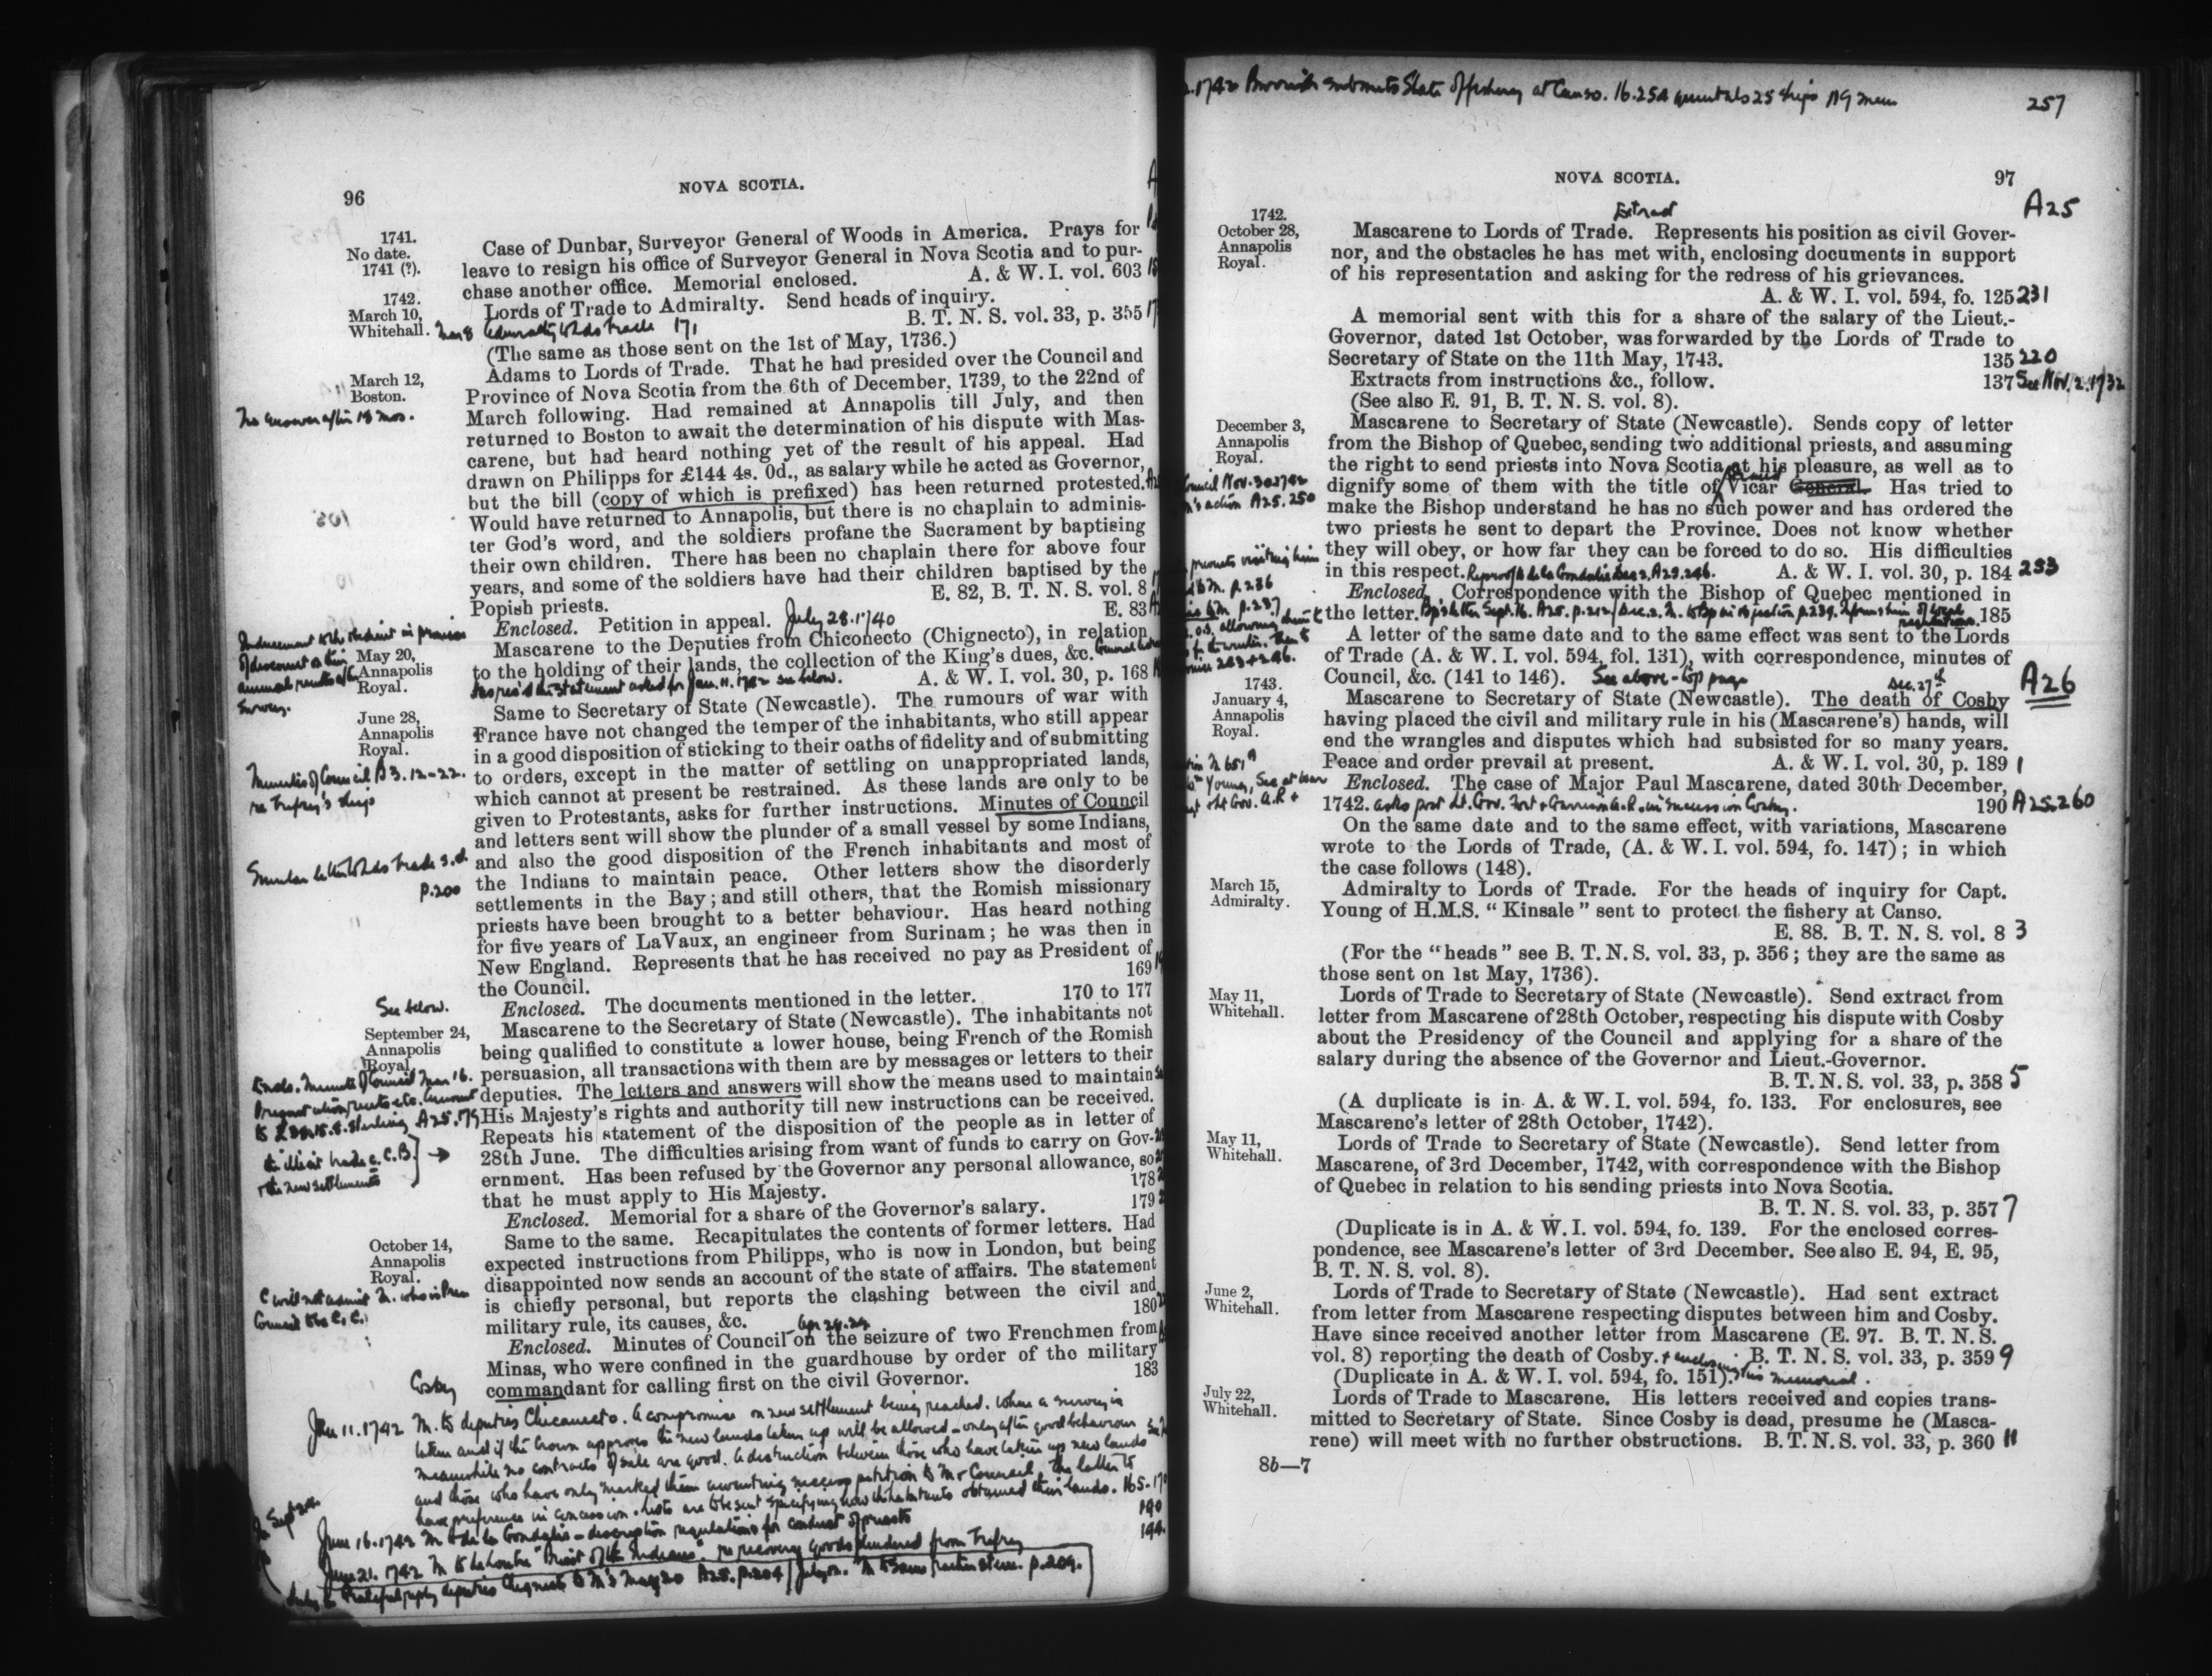 96
NOVA SCOTIA.
1741.
No date.
1741 (?).
Case of Dunbar, Surveyor General of Woods in America. Prays for
leave to resign his office of Surveyor General in Nova Scotia and to pur-
chase another office. Memorial enclosed. A. & W. I. vol. 603
1742.
March 10,
Whitehall.
Lords of Trade to Admiralty. Send heads of inquiry.
B. T. N. S. vol. 33, p. 355
Mar 8 Admiralty to Lds Trade 171
(The same as those sent on the 1st of May, 1736.)
March 12,
Boston.
No answer after 18 mos.
Adams to Lords of Trade. That he had presided over the Council and
Province of Nova Scotia from the 6th of December, 1739, to the 22nd of
March following. Had remained at Annapolis till July, and then
returned to Boston to await the determination of his dispute with Mas-
carene, but had heard nothing yet of the result of his appeal. Had
drawn on Philipps for £144 4s. 0d., as salary while he acted as Governor,
but the bill (copy of which is prefixed) has been returned protested.
Would have returned to Annapolis, but there is no chaplain to adminis-
ter God's word, and the soldiers profane the Sacrament by baptising
their own children. There has been no chaplain there for above four
years, and some of the soldiers have had their children baptised by the
Popish priests. E. 82, B. T. N. S. vol. 8
Enclosed. Petition in appeal. July 28. 1740 E. 83
May 20,
Annapolis
Royal.
Mascarene to the Deputies from Chiconecto (Chignecto), in relation
to the holding of their lands, the collection of the King's dues, &c.
A. & W. I. vol. 30, p. 168
June 28,
Annapolis
Royal.
Same to Secretary of State (Newcastle). The rumours of war with
France have not changed the temper of the inhabitants, who still appear
in a good disposition of sticking to their oaths of fidelity and of submitting
to orders, except in the matter of settling on unappropriated lands,
which cannot at present be restrained. As these lands are only to be
given to Protestants, asks for further instructions. Minutes of Council
and letters sent will show the plunder of a small vessel by some Indians,
and also the good disposition of the French inhabitants and most of
the Indians to maintain peace. Other letters show the disorderly
settlements in the Bay; and still others, that the Romish missionary
priests have been brought to a better behaviour. Has heard nothing
for five years of LaVaux, an engineer from Surinam; he was then in
New England. Represents that he has received no pay as President of
the Council. 169
Minutes of Council B3. 12-22.
re Trefry's ship
Similar letter to Lds Trade s.d.
p. 200
See below.
Enclosed. The documents mentioned in the letter. 170 to 177
September 24,
Annapolis
Royal.
Mascarene to the Secretary of State (Newcastle). The inhabitants not
being qualified to constitute a lower house, being French of the Romish
persuasion, all transactions with them are by messages or letters to their
deputies. The letters and answers will show the means used to maintain
His Majesty's rights and authority till new instructions can be received.
Repeats his statement of the disposition of the people as in letter of
28th June. The difficulties arising from want of funds to carry on Gov-
ernment. Has been refused by the Governor any personal allowance, so
that he must apply to His Majesty. 178
Enclosed. Memorial for a share of the Governor's salary. 179
October 14,
Annapolis
Royal.
Same to the same. Recapitulates the contents of former letters. Had
expected instructions from Philipps, who is now in London, but being
disappointed now sends an account of the state of affairs. The statement
is chiefly personal, but reports the clashing between the civil and
military rule, its causes, &c. 180
Enclosed. Minutes of Council on the seizure of two Frenchmen from
Minas, who were confined in the guardhouse by order of the military
commandant for calling first on the civil Governor. 183
Cosby
Jan 11. 1742 M. to deputies Chiconecto. A compromise on new settlement being reached. When a survey is
taken and if the Crown approves the new lands taken up will be allowed - only after good behaviour
meanwhile no contracts of sale are good. A distinction between those who have taken up new lands
and those who have only marked them awaiting success petition to M & Council, the latter to
have preference in concession. Lists are to be sent specifying how inhabitants obtained their lands. 165-170
257
NOVA SCOTIA.
97
A25
1742.
October 28,
Annapolis
Royal.
Extract
Mascarene to Lords of Trade. Represents his position as civil Gover-
nor, and the obstacles he has met with, enclosing documents in support
of his representation and asking for the redress of his grievances.
A. & W. I. vol. 594, fo. 125 231
A memorial sent with this for a share of the salary of the Lieut.-
Governor, dated 1st October, was forwarded by the Lords of Trade to
Secretary of State on the 11th May, 1743. 135 220
Extracts from instructions &c., follow. 137 See Nov. 2. 1732
(See also E. 91, B. T. N. S. vol. 8).
December 3,
Annapolis
Royal.
Mascarene to Secretary of State (Newcastle). Sends copy of letter
from the Bishop of Quebec, sending two additional priests, and assuming
the right to send priests into Nova Scotia at his pleasure, as well as to
dignify some of them with the title of Vicar General. Has tried to
make the Bishop understand he has no such power and has ordered the
two priests he sent to depart the Province. Does not know whether
they will obey, or how far they can be forced to do so. His difficulties
in this respect. A. & W. I. vol. 30, p. 184 233
Enclosed. Correspondence with the Bishop of Quebec mentioned in
the letter. 185
A letter of the same date and to the same effect was sent to the Lords
of Trade (A. & W. I. vol. 594, fol. 131), with correspondence, minutes of
Council, &c. (141 to 146). See above - top page
A26
1743.
January 4,
Annapolis
Royal.
Dec. 27th
Mascarene to Secretary of State (Newcastle). The death of Cosby
having placed the civil and military rule in his (Mascarene's) hands, will
end the wrangles and disputes which had subsisted for so many years.
Peace and order prevail at present. A. & W. I. vol. 30, p. 189 1
Enclosed. The case of Major Paul Mascarene, dated 30th December,
1742. asks post Lt. Gov. Fort & Garrison A.R. in succession Cosby. 190 A25.260
On the same date and to the same effect, with variations, Mascarene
wrote to the Lords of Trade, (A. & W. I. vol. 594, fo. 147); in which
the case follows (148).
March 15,
Admiralty.
Admiralty to Lords of Trade. For the heads of inquiry for Capt.
Young of H.M.S. "Kinsale" sent to protect the fishery at Canso.
E. 88. B. T. N. S. vol. 8 3
(For the "heads" see B. T. N. S. vol. 33, p. 356; they are the same as
those sent on 1st May, 1736).
May 11,
Whitehall.
Lords of Trade to Secretary of State (Newcastle). Send extract from
letter from Mascarene of 28th October, respecting his dispute with Cosby
about the Presidency of the Council and applying for a share of the
salary during the absence of the Governor and Lieut.-Governor.
B. T. N. S. vol. 33, p. 358 5
(A duplicate is in A. & W. I. vol. 594, fo. 133. For enclosures, see
Mascarene's letter of 28th October, 1742).
May 11,
Whitehall.
Lords of Trade to Secretary of State (Newcastle). Send letter from
Mascarene, of 3rd December, 1742, with correspondence with the Bishop
of Quebec in relation to his sending priests into Nova Scotia.
B. T. N. S. vol. 33, p. 357 7
(Duplicate is in A. & W. I. vol. 594, fo. 139. For the enclosed corres-
pondence, see Mascarene's letter of 3rd December. See also E. 94, E. 95,
B. T. N. S. vol. 8).
June 2,
Whitehall.
Lords of Trade to Secretary of State (Newcastle). Had sent extract
from letter from Mascarene respecting disputes between him and Cosby.
Have since received another letter from Mascarene (E. 97. B. T. N. S.
vol. 8) reporting the death of Cosby. + enclosing his memorial. B. T. N. S. vol. 33, p. 359 9
(Duplicate in A. & W. I. vol. 594, fo. 151).
July 22,
Whitehall.
Lords of Trade to Mascarene. His letters received and copies trans-
mitted to Secretary of State. Since Cosby is dead, presume he (Masca-
rene) will meet with no further obstructions. B. T. N. S. vol. 33, p. 360 11
8b—7